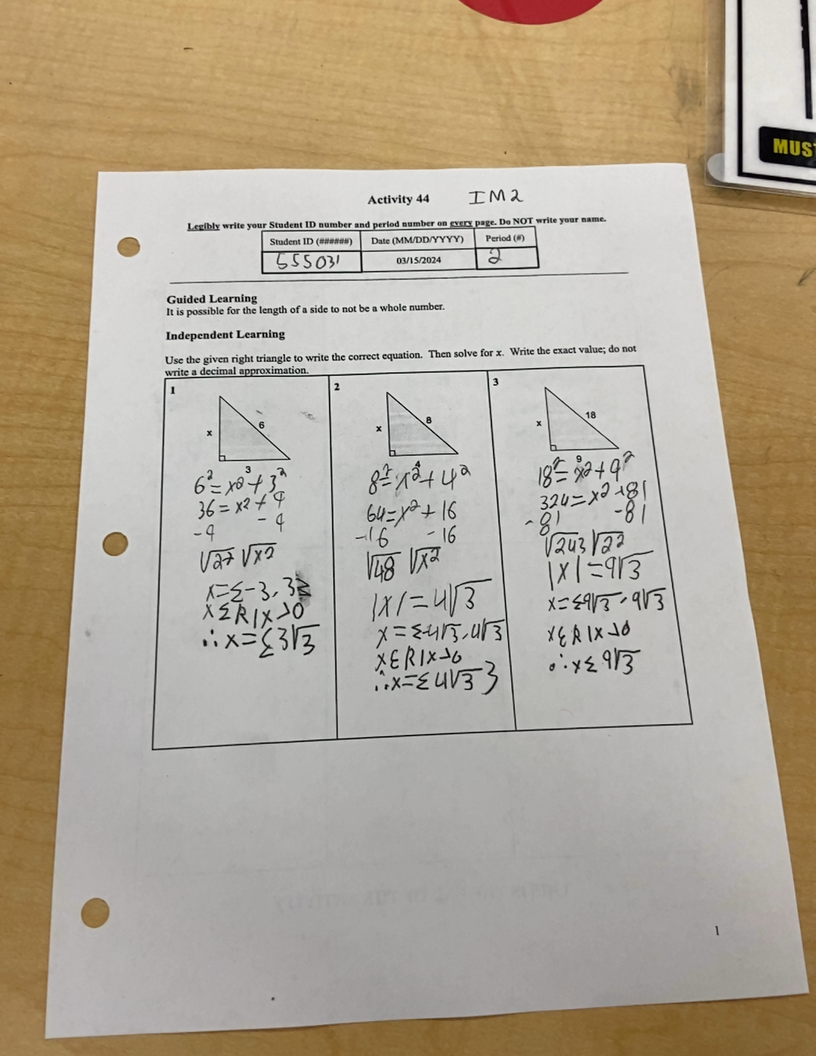 MUS
Activity 44 IM2
Legibly write your Student ID number and period number on every page. Do NOT write your name.
Student ID (######) Date (MM/DD/YYYY) Period (#)
555031 03/15/2024 2
Guided Learning
It is possible for the length of a side to not be a whole number.
Independent Learning
Use the given right triangle to write the correct equation. Then solve for x. Write the exact value; do not
write a decimal approximation.
1
x
6
3
6²=x²+3²
36=x²+9
-9 -9
√27 √x²
x={-3,3
xεR|x>0
∴x={3√3
2
x
8
4
8²=x²+4²
64=x²+16
-16 -16
√48 √x²
|x|=4√3
x={-4√3,4√3
xεR|x>0
∴x={4√3}
3
x
18
9
18²=x²+9²
324=x²+81
-81 -81
√243 √22
|x|=9√3
x={9√3,9√3
xεR|x>0
∴x{9√3
1